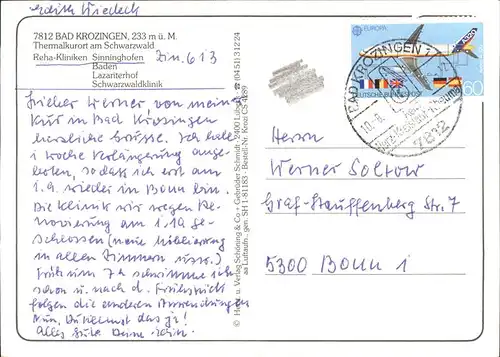 Edith Wiedeck
7812 BAD KROZINGEN, 233 m ü. M.
Thermalkurort am Schwarzwald
Reha-Kliniken Sinninghofen Zim. 613
Baden
Lazariterhof
Schwarzwaldklinik
Lieber Werner, von meiner
Kur in Bad Krozingen
herzliche Grüsse. Ich habe
1 Woche Verlängerung ange-
boten, sodass ich erst am
1.9. wieder in Bonn bin.
Die Klinik wir wegen Re-
novierung am 1.10 ge-
schlossen (neue Möblierung
in allen Zimmern usw.)
Früh um 7h schwimme ich
schon u. nach d. Frühstück
folgen die anderen Anwendungen
Nun, Du kennst das ja!
Alles Gute Deine
© Herst. u. Verlag Schöning & Co + Gebrüder Schmidt 2400 Lübeck ☎ (04 51) 3 12 24
as Luftaufn., gen. SH 1-811/83 - Bestell-Nr. Krozi
EUROPA
60
DEUTSCHE BUNDESPOST
BAD KROZINGEN 1
7812
Herrn
Werner Soltow
Graf-Stauffenberg Str. 7
5300 Bonn 1